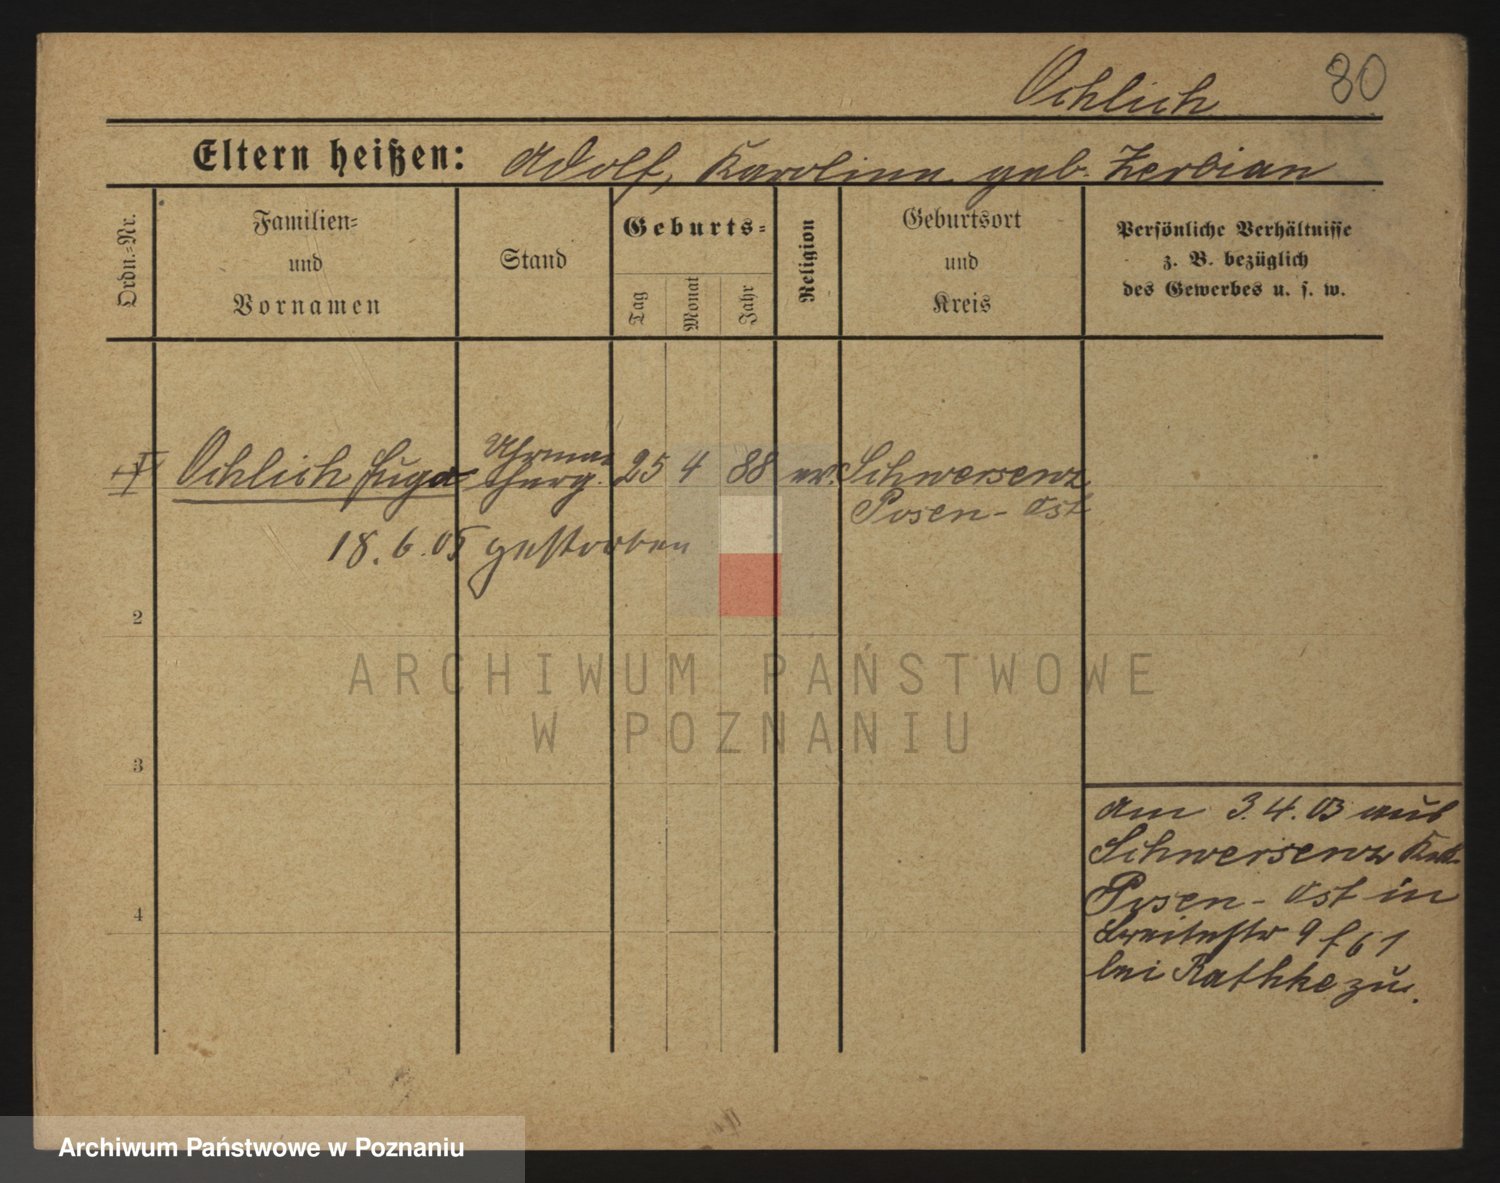 Ochlich 80
Eltern heißen: Adolf, Karoline geb. Zerbian
Ordn.=Nr.
Familien=
und
Vornamen
Stand
Geburts=
Tag
Monat
Jahr
Religion
Geburtsort
und
Kreis
Persönliche Verhältnisse
z. B. bezüglich
des Gewerbes u. s. w.
Ochlich Hugo
Uhrma
cherg.
25 4 88 ev. Schwersenz
Posen-Ost
18.6.05 gestorben
2
3
4
Am 3.4.03 aus
Schwersenz
Posen-Ost in
Breitestr 9
bei Rathke zu.
ARCHIWUM PAŃSTWOWE
W POZNANIU
Archiwum Państwowe w Poznaniu